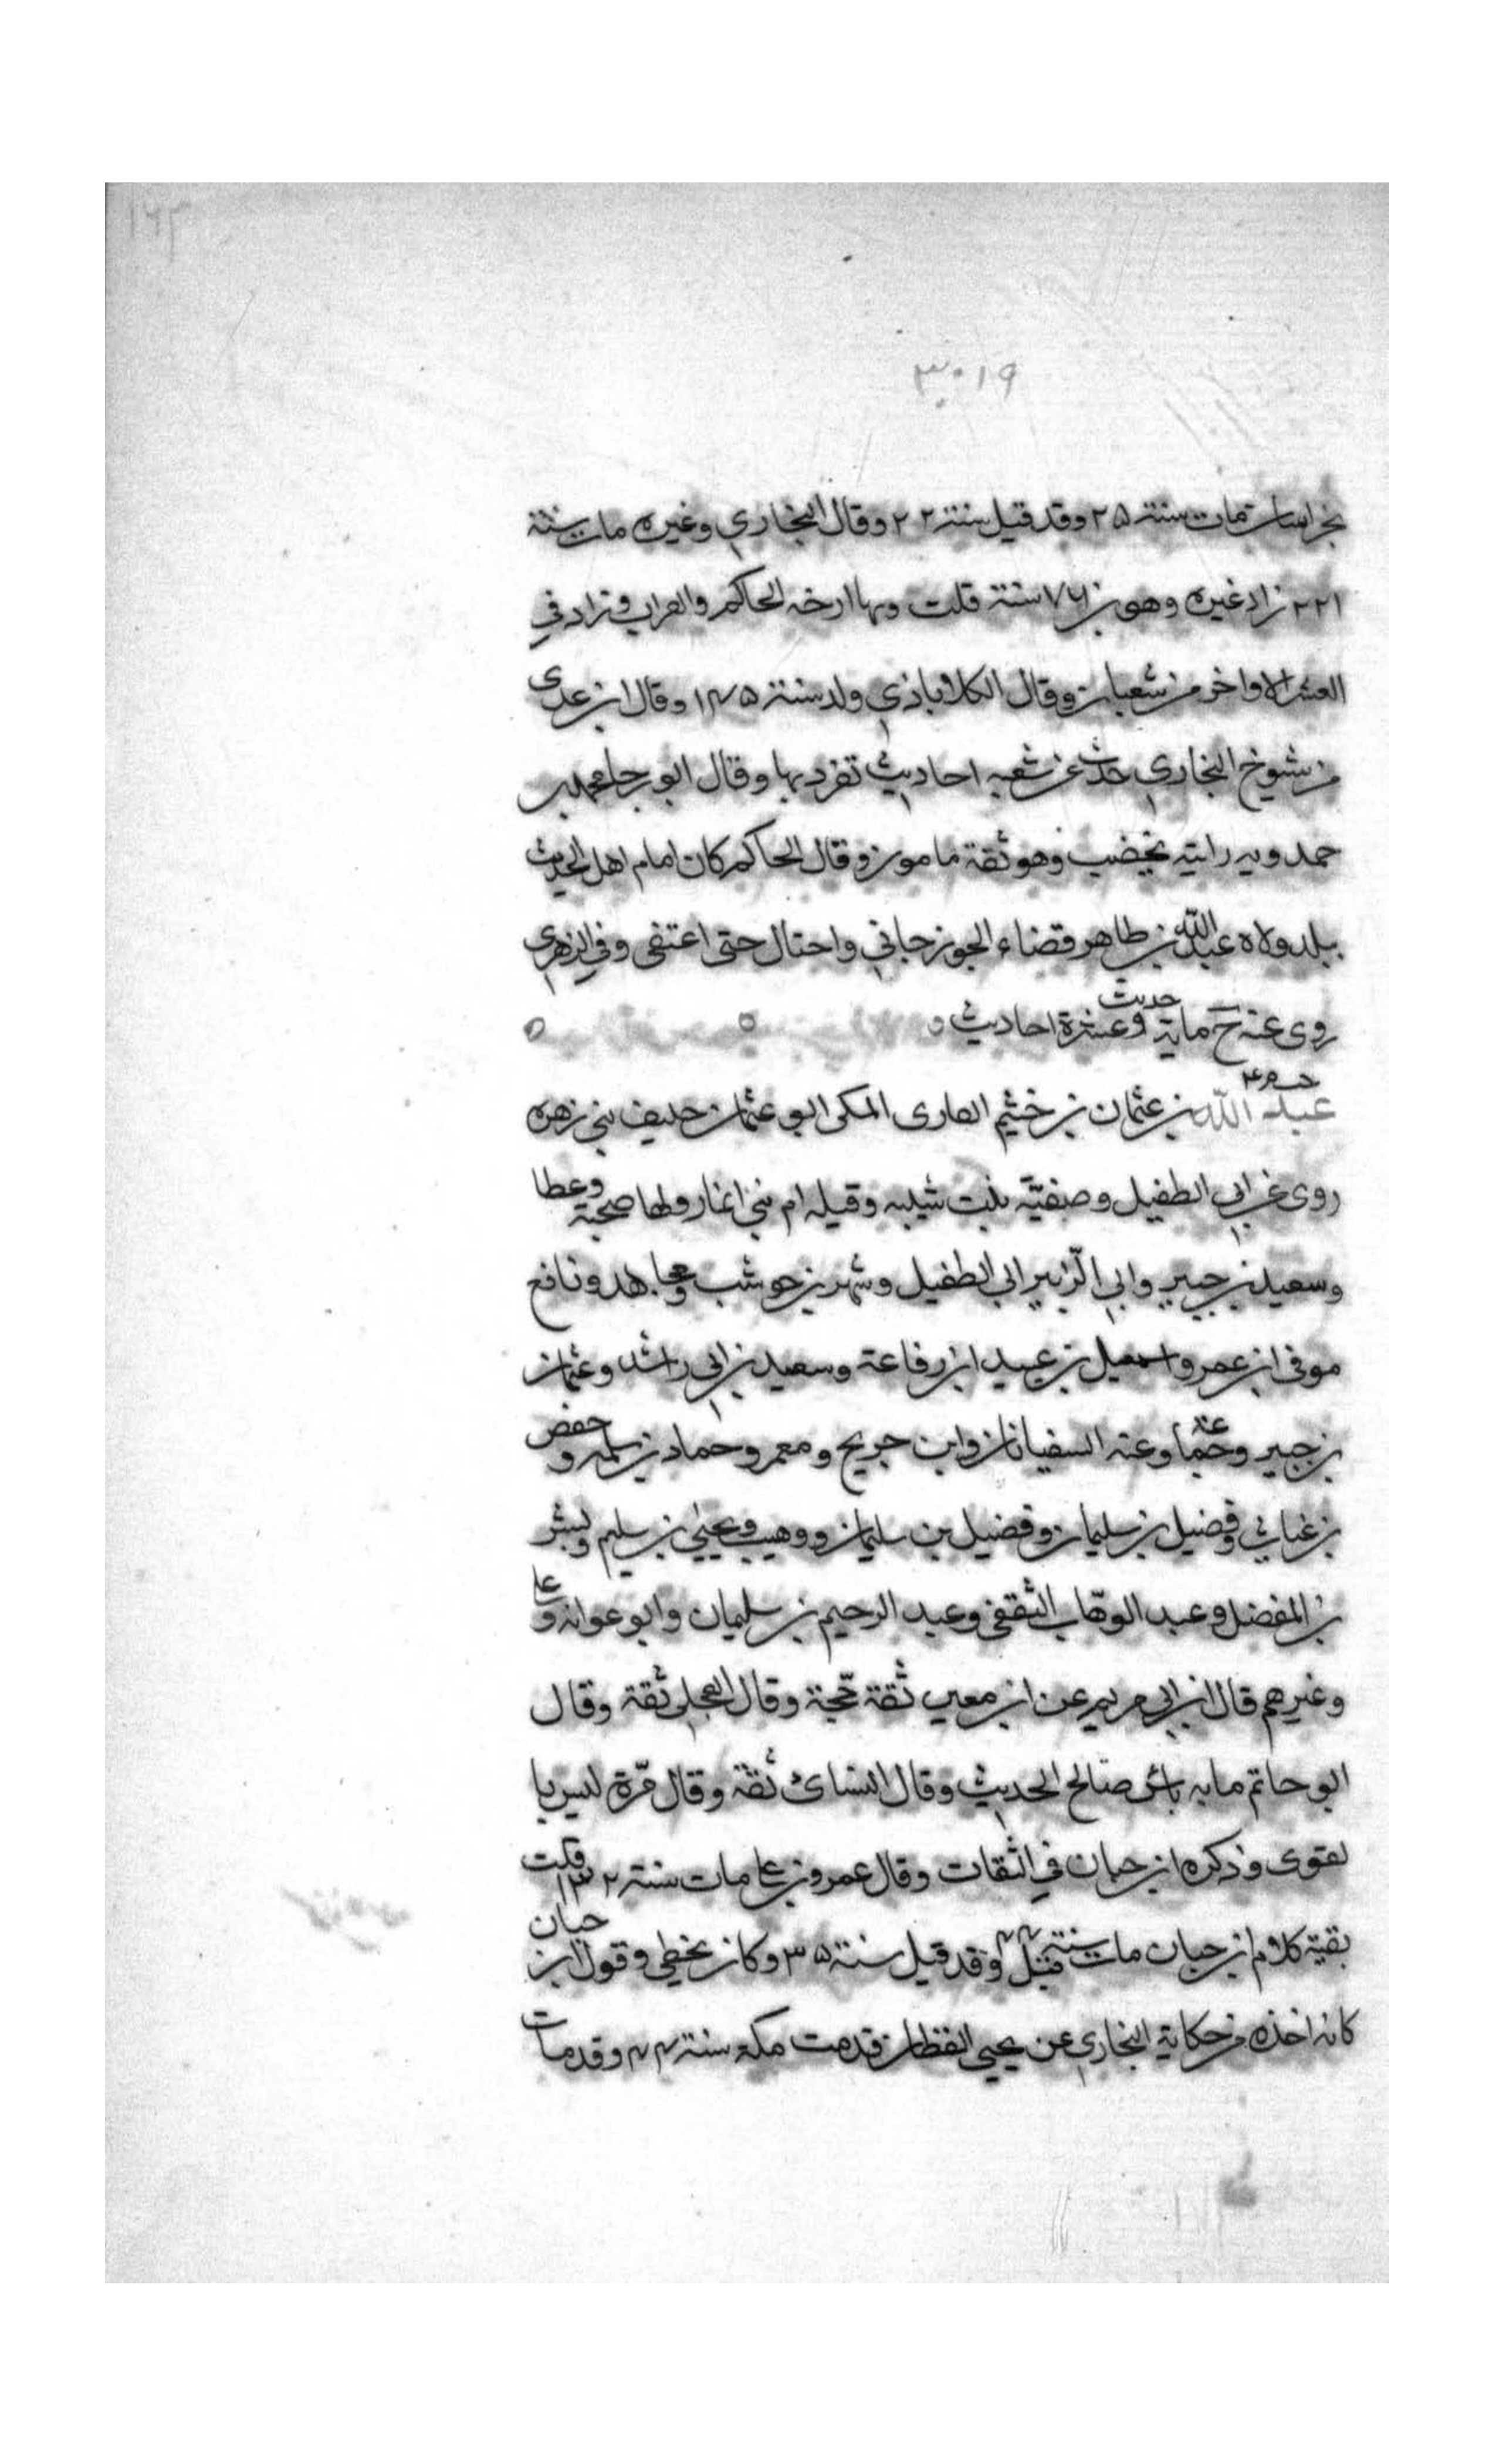 ١٦٣
٣٠١٩
بخراسان مات سنة ٢٥ وقد قيل سنة ٢٢ وقال البخاري وغيره مات سنة
٢٢١ زاد غيره وهو بن ٧٦ سنة قلت وبها ارخه الحاكم والقراب وزاد في
العشر الاواخر من شعبان وقال الكلاباذي ولد سنة ١٤٥ وقال ابن عدى
من شيوخ البخاري حدث عن شعبه احاديث تفرد بها وقال ابو رجا محمد بن
حمدويه رايته يخضب وهو ثقة مامون وقال الحاكم كان امام اهل الحديث
ببلده ولاه عبد الله بن طاهر قضاء الجوزجاني واحتال حتى اعتفى وفي الزهرى
روى عنه خ ماية حديث وعشرة احاديث
عبد الله بن عثمان بن خثيم القارى المكى ابو عثمان حليف بني زهره
روى عن ابي الطفيل وصفيّة بنت شيبه وقيله ام بني انمار ولها صحبة وعطا
وسعيد بن جبير وابي الزّبير ابي الطفيل وشهر بن حوشب ومجاهد ونافع
موفى ابن عمر واسمعيل بن عبيد ابن رفاعة وسعيد بن ابي راشد وعثمان
بن جبير وجماعة وعنه السفيانان وابن جريج ومعمر وحماد بن سلمه وحفص
بن غياث وفضيل بن سليمان وفضيل بن سليمان ووهيب ويحيى بن سليم وبشر
بن المفضل وعبد الوهّاب الثقفي وعبد الرحيم بن سليمان وابو عوانه وعلي
وغيرهم قال ابن ابي مريم عن ابن معين ثقة حجّة وقال العجلي ثقة وقال
ابو حاتم ما به باس صالح الحديث وقال النسائ ثقة وقال مّرة ليس با
لقوى وذكره ابن حبان في الثقات وقال عمرو بن علي مات سنة ١٣٢ قلت
بقية كلام ابن حبان مات سنة ٤٤ وقد قيل سنة ٣٥ وكان يخطي وقول ابن حبان
كانه اخذه من حكاية البخاري عن يحيى القطان قدمت مكة سنة ٤٤ وقد مات